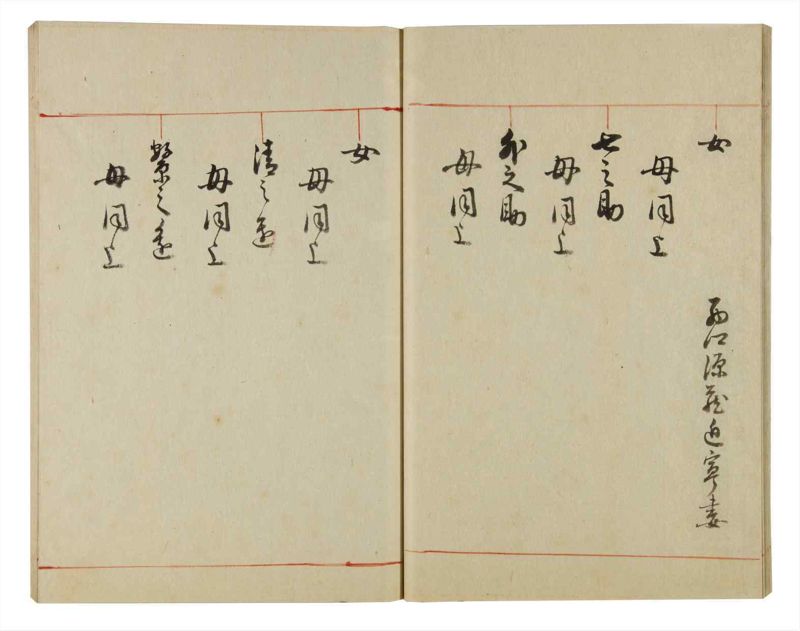 女
江源蔵妻
母同上
七之助
母同上
外之助
母同上
女
母同上
清之進
母同上
繁之進
母同上